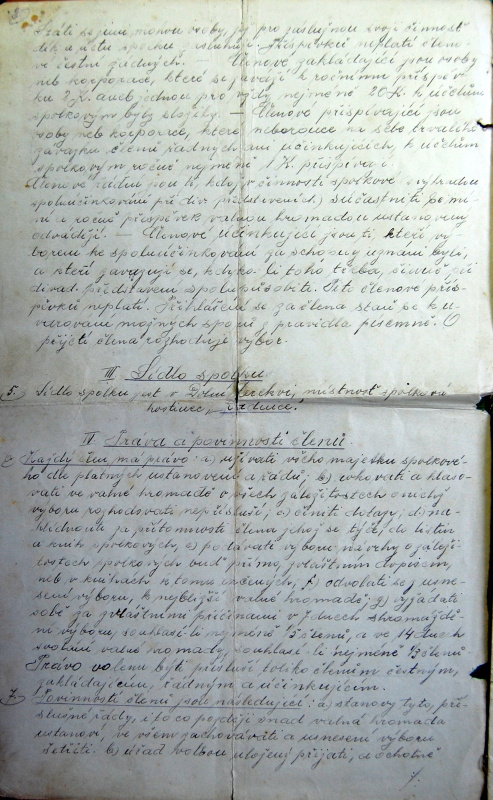 státi se jimi mohou osoby, jež pro záslužnou svoji činnost
dík a úctu spolku zasluhují. Příspěvků neplatí členo-
vé čestní žádných. — Členové zakládající jsou osoby
neb korporace, které se zavázují k ročnímu příspěv-
ku 2 K. aneb jednou pro vždy nejméně 20 K. k účelům
spolkovým byly složily. — Členové přispívající jsou
osoby neb korporace, které neberouce na sebe trvalého
závazku členů řádných ani účinkujících, k účelům
spolkovým ročně nejméně 1 K. přispívají.
Členové řádní jsou ti, kdož v činnosti spolkové s výhradou
spoluúčinkování při div. představeních, súčastniti se mí-
ní a roční příspěvek valnou hromadou ustanovený
odvádějí. — Členové účinkující jsou ti, kteří vý-
borem ke spoluúčinkování za schopny uznáni byli,
a kteří zavazují se, kdyko-li toho třeba, účinně při
divad. představení spolupůsobiti. Tito členové přís-
pěvků neplatí. Přihlášení se za člena staň se k u-
varování možných sporů z pravidla písemně. O
přijetí člena rozhoduje výbor.
III. Sídlo spolku
5.) Sídlo spolku jest v Dolní Cerekvi, místnost spolková
hostinec, radnice.
IV. Práva a povinnosti členů.
6.) Každý člen má právo: a.) užívati všeho majetku spolkové-
ho dle platných ustanovení a řádů; b.) volovati a hlaso-
vati ve valné hromadě o všech záležitostech o nichž
výboru rozhodovati nepřísluší; c.) činiti dotazy; d.) na-
hlédnouti za přítomnosti člena jehož se týče, do listin
a knih spolkových, e.) podávati výboru návrhy o záleži-
tostech spolkových buď přímo, zvláštním dopisem,
neb v knihách k tomu určených; f.) odvolati se z usne-
sení výboru, k nejbližší valné hromadě; g.) vyžádati
sobě za zvláštními příčinami v 7 dnech shromáždě-
ní výboru, souhlasí-li nejméně 15 členů, a ve 14 dnech
svolání valné hromady, souhlasí-li nejméně ⅓ členů.
Právo volenu býti přísluší toliko členům čestným,
zakládajícím, řádným a účinkujícím.
7.) Povinnosti členů jsou následující: a.) stanovy tyto, pří-
slušné řády, i to co později snad valná hromada
ustanoví, ve všem zachovávati a usnesení výboru
šetřiti. b.) úřad volbou uložený přijati, a ochotně
7.